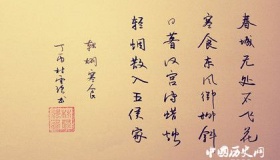 春城无处不飞花
寒食东风御柳斜
日暮汉宫传蜡烛
轻烟散入五侯家
韩翃 寒食
丁酉 书
中国历史网